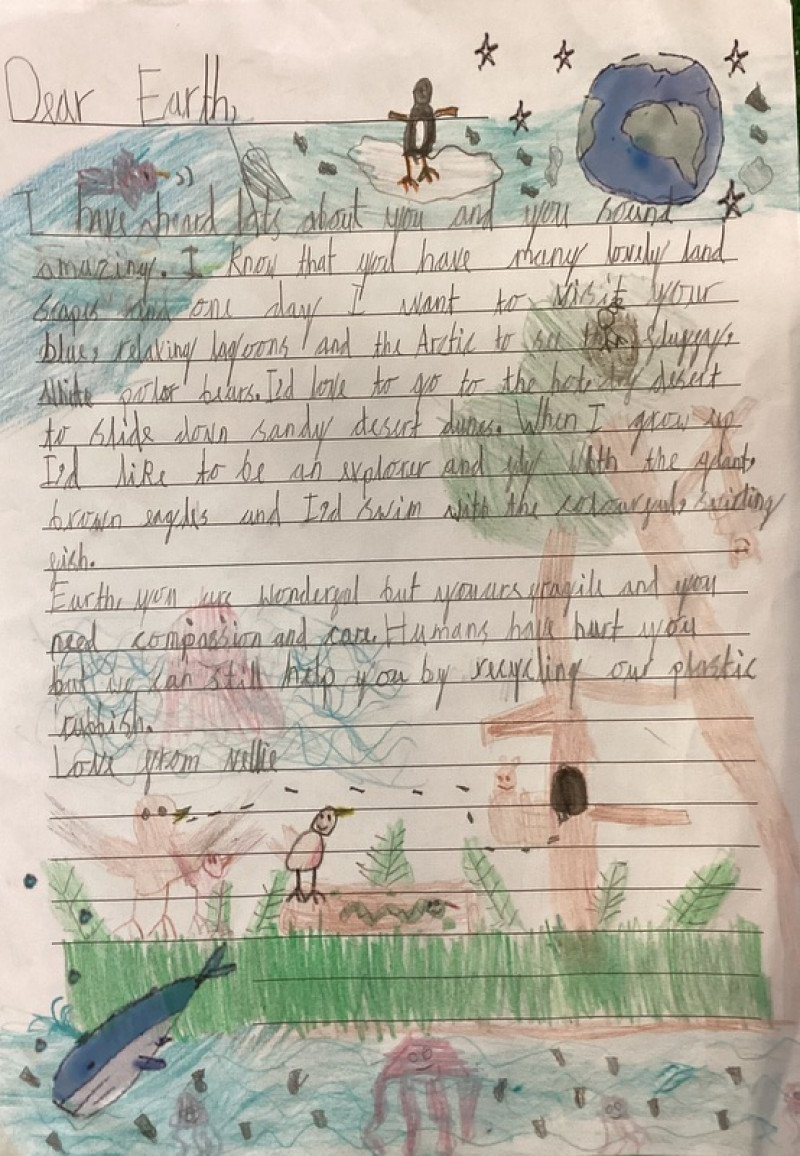 Dear Earth,
I have heard lots about you and you sound
amazing. I know that you have many lovely land
scapes and one day I want to visit your
blue, relaxing lagoons and the Arctic to see the fluffy,
white polar bears. I'd love to go to the hot, dry desert
to slide down sandy desert dunes. When I grow up
I'd like to be an explorer and fly with the giant,
brown eagles and I'd swim with the colourful, swirling
fish.
Earth, you are wonderful but yours fragile and you
need compassion and care. Humans have hurt you
but we can still help you by recycling our plastic
rubbish.
Love from Nellie